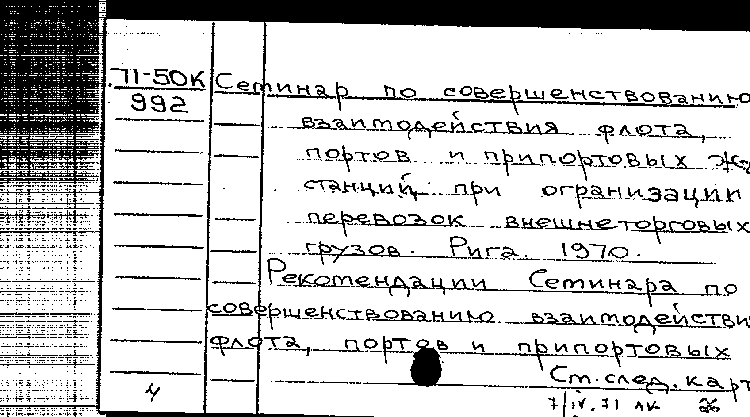 71-50К Семинар по совершенствованию
992
взаимодействия флота,
портов и припортовых жд
станций при огранизации
перевозок внешнеторговых
грузов. Рига. 1970.
Рекомендации Семинара по
совершенствованию взаимодействи
флота, портов и припортовых
См. след. карт
ч 7/IV.71 лк